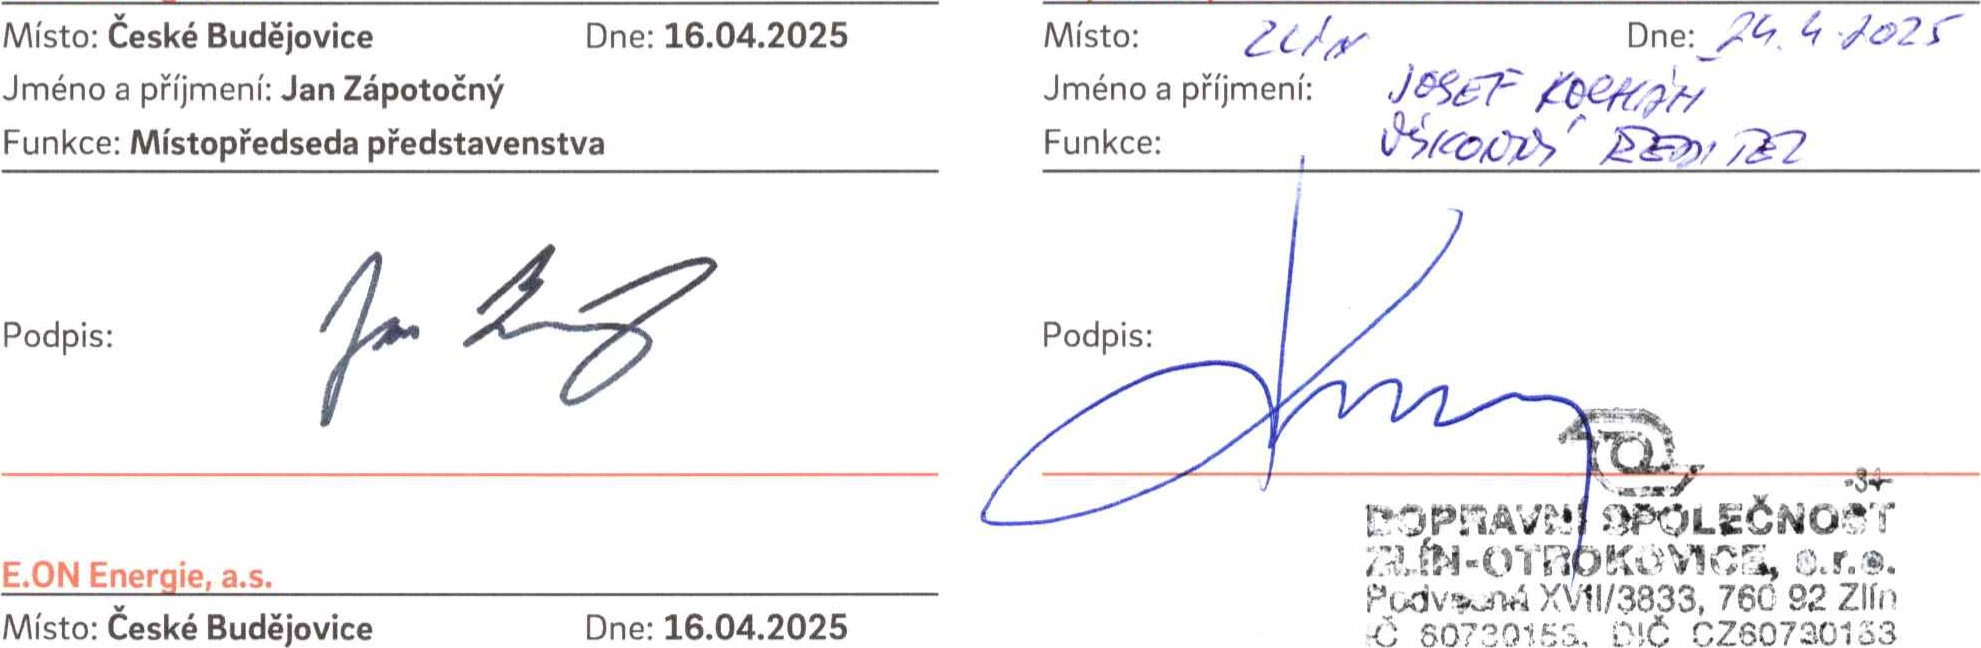 Místo: České Budějovice Dne: 16.04.2025
Jméno a příjmení: Jan Zápotočný
Funkce: Místopředseda představenstva
Podpis:
E.ON Energie, a.s.
Místo: České Budějovice Dne: 16.04.2025
Místo: ZLÍN Dne: 24.4.2025
Jméno a příjmení: JOSEF KOCHÁŇ
Funkce: VÝKONNÝ ŘEDITEL
Podpis:
-34-
DOPRAVNÍ SPOLEČNOST
ZLÍN-OTROKOVICE, s.r.o.
Podvesná XVII/3833, 760 92 Zlín
IČ 60730153, DIČ CZ60730153